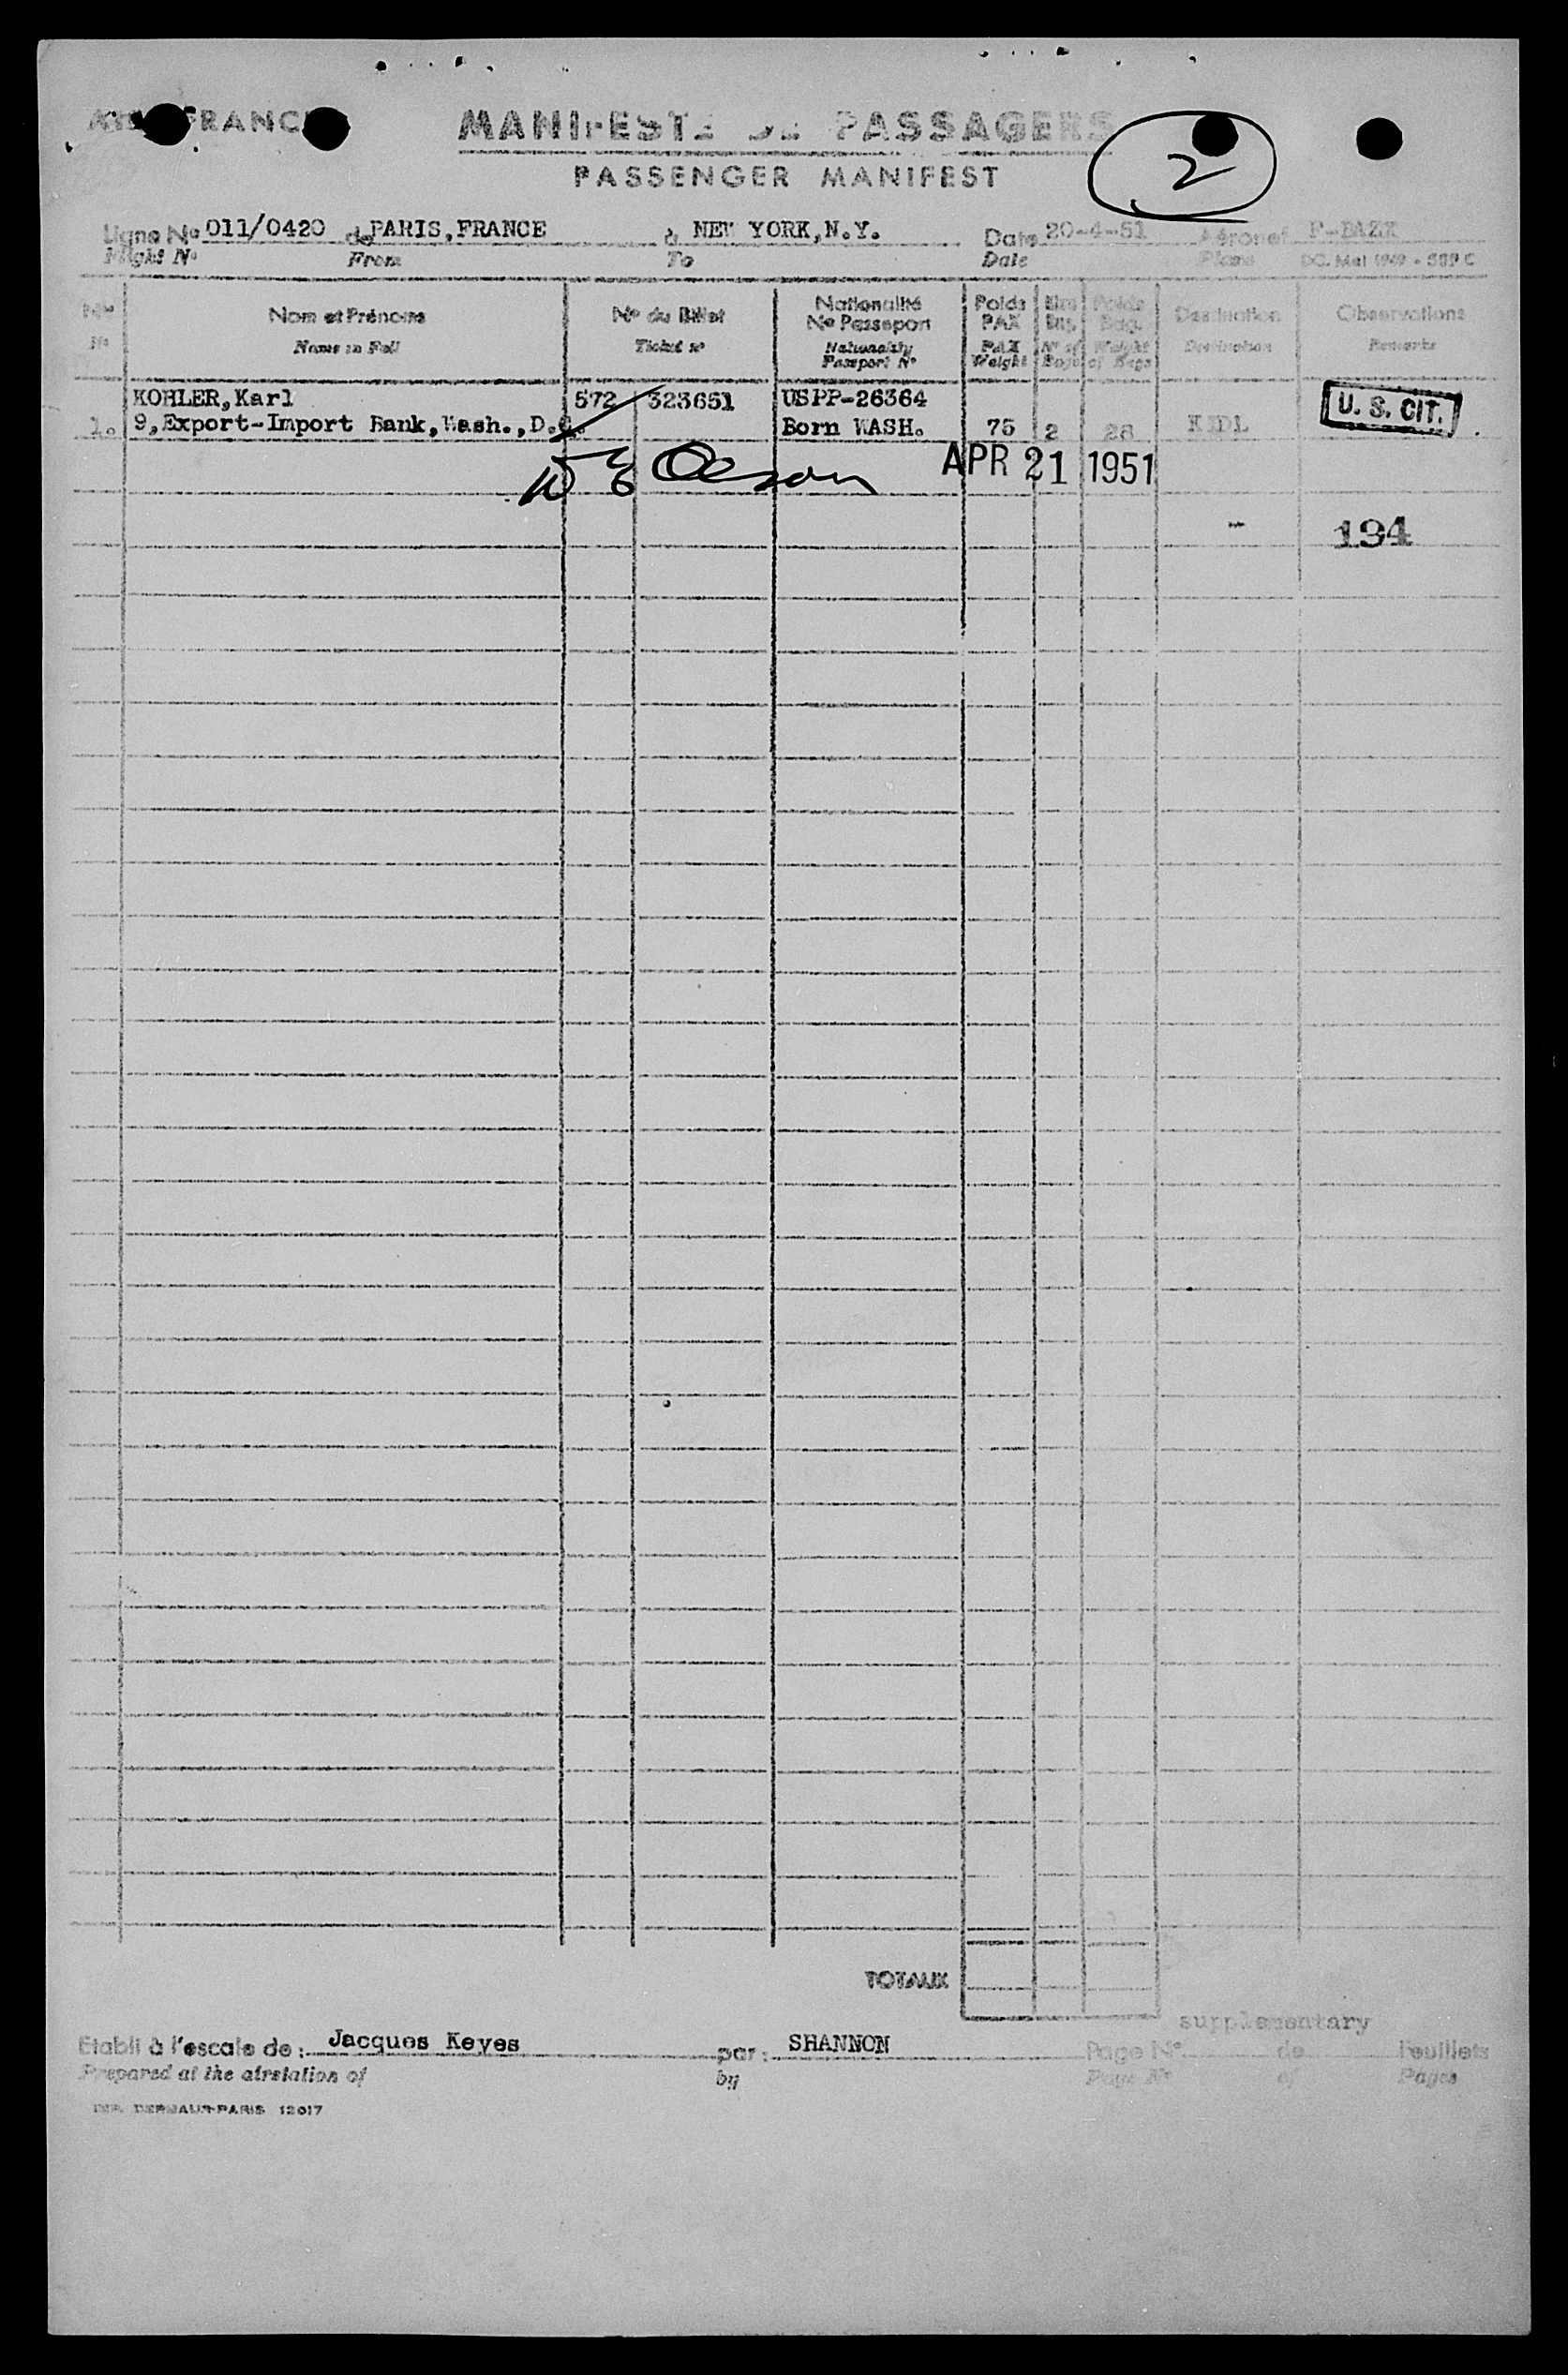 AIR FRANCE
MANIFESTE DE PASSAGERS
PASSENGER MANIFEST
2
Ligne No 011/0420 de PARIS,FRANCE à NEW YORK,N.Y. Date 20-4-51 Aéronef
Flight No From To Date Plane DC. Mai 1949 - 589 C
Nos Nom et Prénoms No du Billet Nationalité No Passeport Poids PAX Poids Bag. Destination Observations
No Name in Full Ticket no Nationality Passport No PAX Weight No of Bags Weight of Bags Destination Remarks
KOHLER,Karl 572 323651 USPP-26364 U. S. CIT.
1. 9,Export-Import Bank,Wash.,D.C. Born WASH. 75 2 28
W E Olson APR 21 1951
194
TOTAUX
supplementary
Etabli à l'escale de: Jacques Keyes par: SHANNON Page No de Feuillets
Prepared at the airstation of by Page No of Pages
PARIS 12017